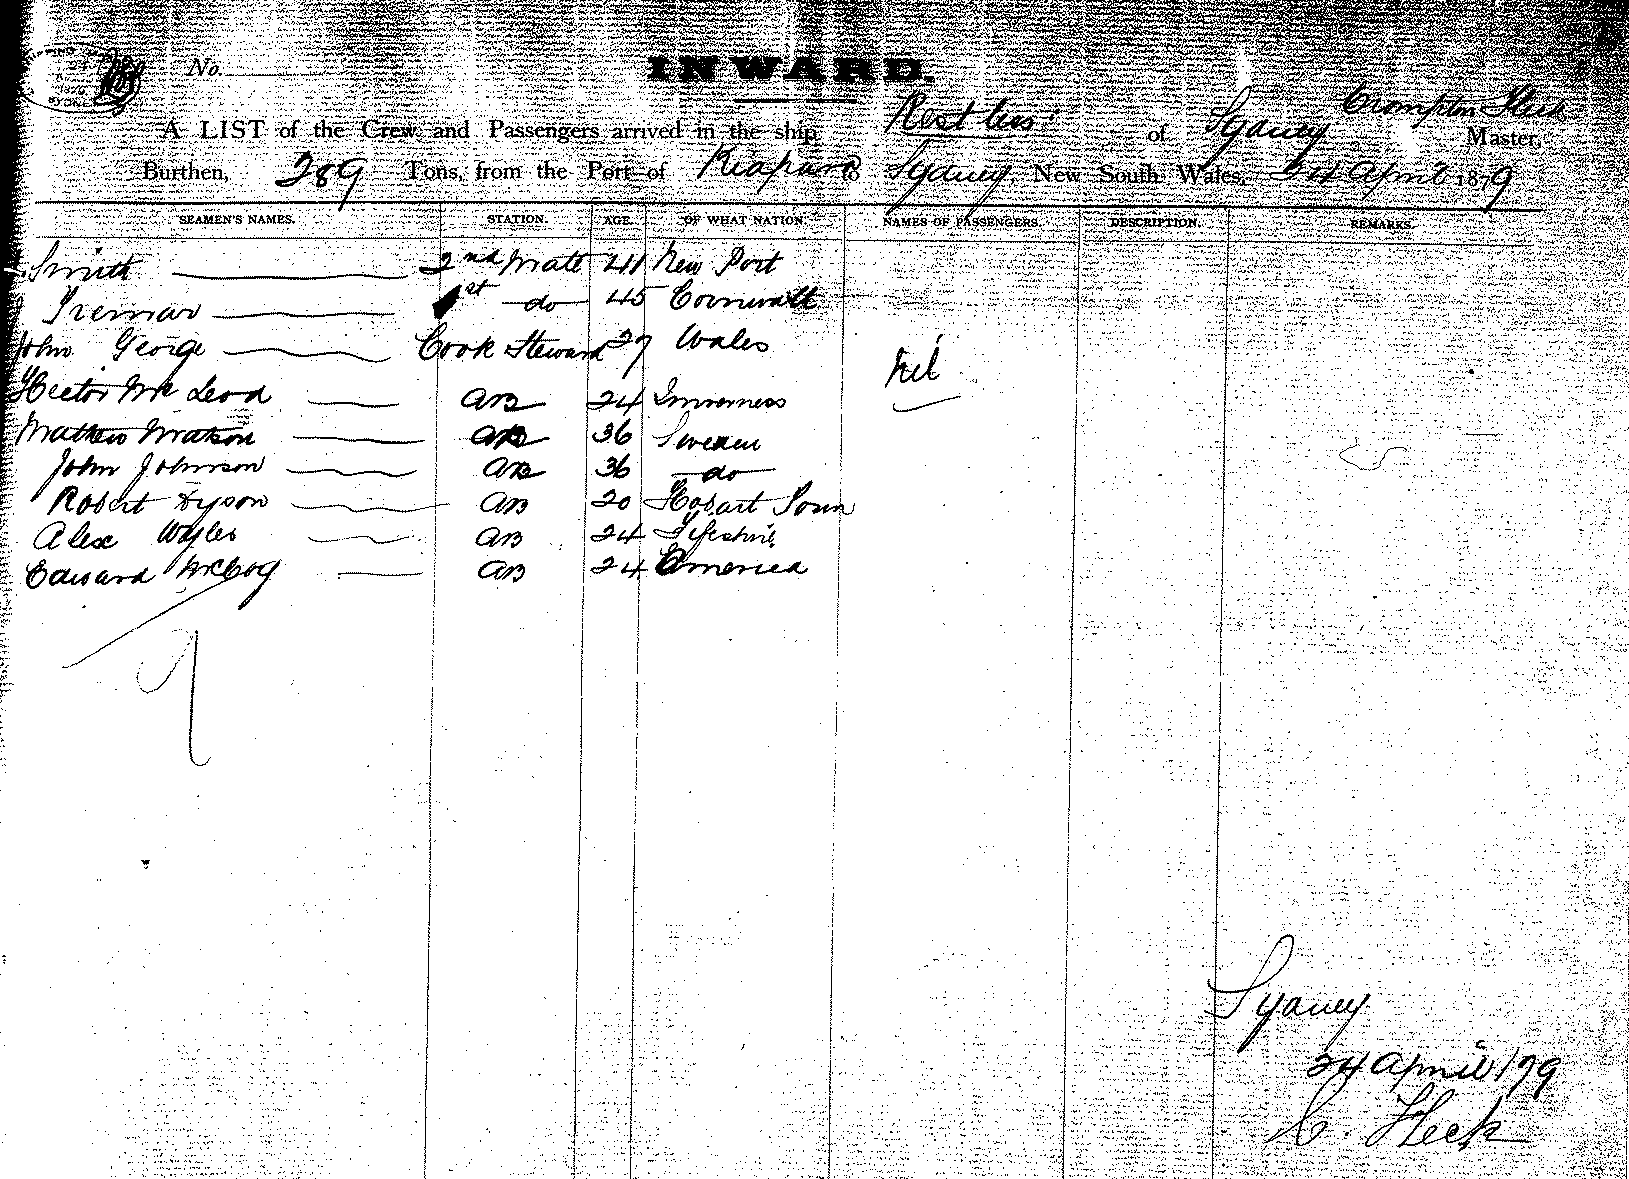 No.
INWARD.
A LIST of the Crew and Passengers arrived in the ship Restless of Sydney Crompton Fleck Master,
Burthen, 289 Tons, from the Port of Kiapara to Sydney, New South Wales, 24 April 1879
SEAMEN'S NAMES. STATION. AGE OF WHAT NATION NAMES OF PASSENGERS. DESCRIPTION. REMARKS.
Smith 2nd Mate 41 New Port
1st do 45 Cornwall
John George Cook Steward 27 Wales
nil
Hector McLeod AB 24 Inverness
Mathew Matson AB 36 Sweden
John Johnson AB 36 do
Robert Dyson AB 20 Hobart Town
Alex AB 24 Fifeshire
Edward McCoy AB 24 America
9
Sydney
24 April/79
C. Fleck